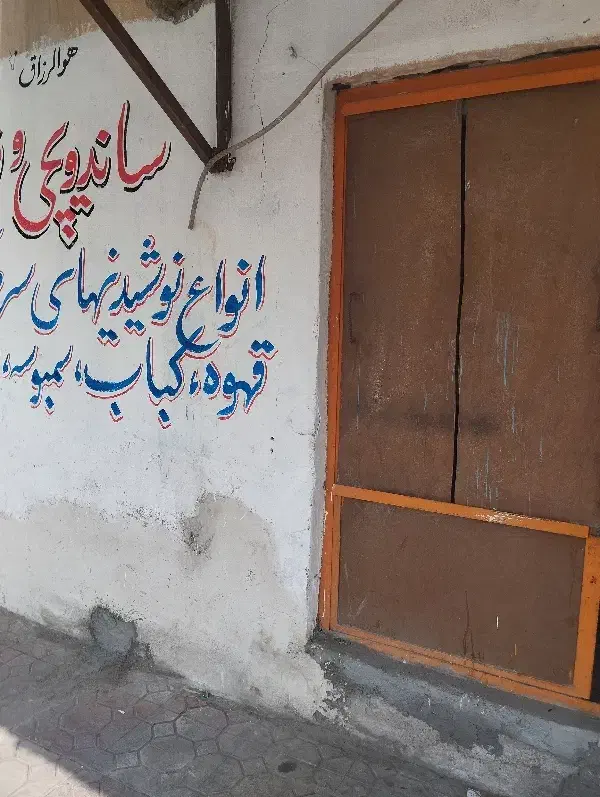 هوالرزاق
ساندویچی و
انواع نوشیدنیهای
قهوه، کباب، سمبوسه،